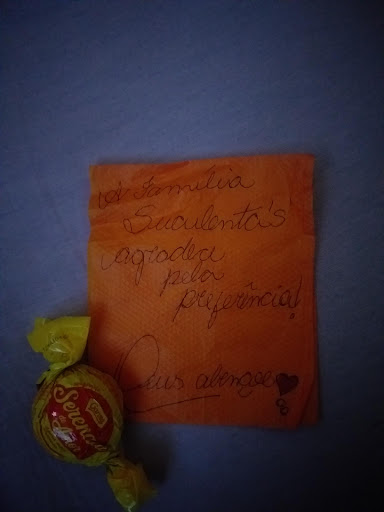 A Família
Suculenta's
agradece
pela
preferência!
Deus abençoe
Garoto
Serenata
de Amor